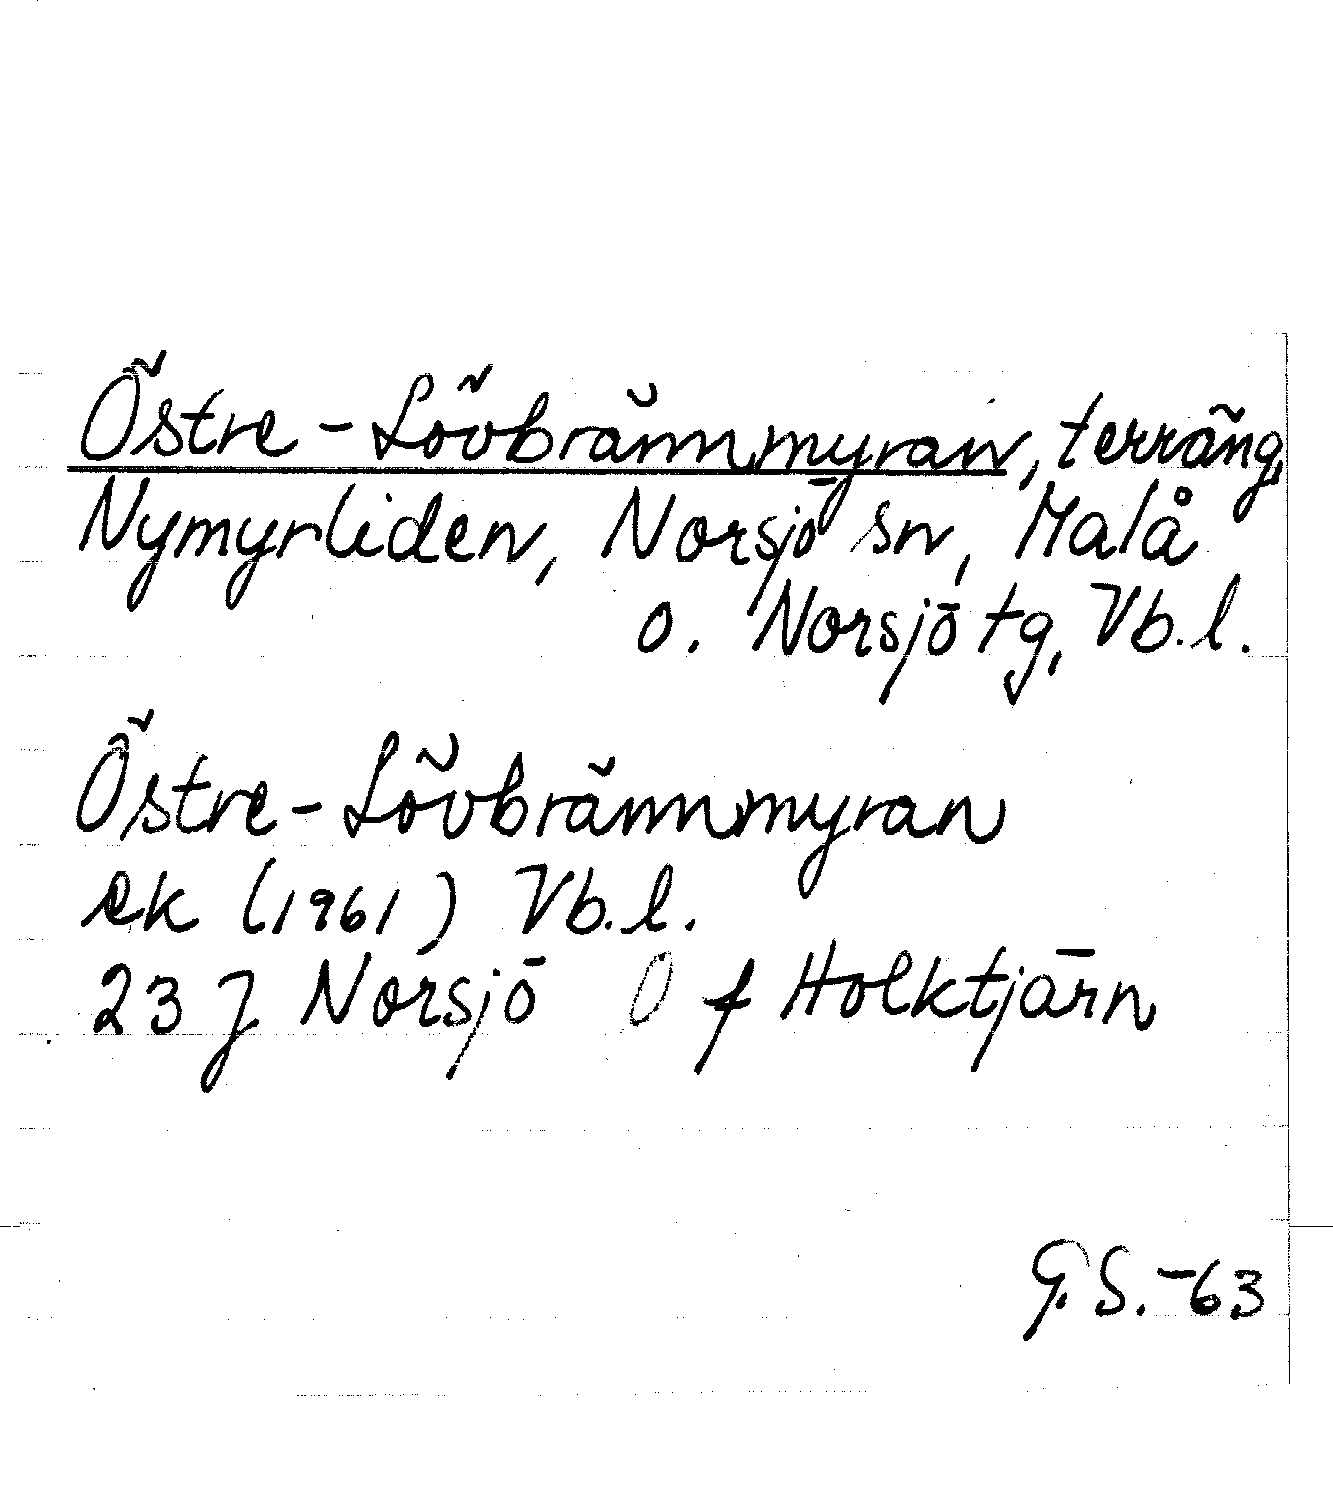 Östre-Lövbrännmyran, terräng,
Nymyrliden, Norsjö sn, Malå
o. Norsjö tg, Vb.l.
Östre-Lövbrännmyran
ek (1961) Vb.l.
23 J Norsjö 0 f Holktjärn
G.S.-63